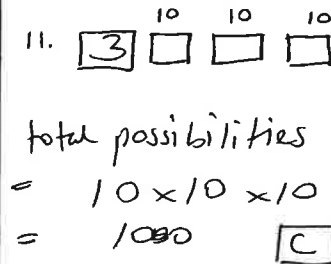 10 10 10
11. 3
total possibilities
= 10 × 10 × 10
= 1000
C